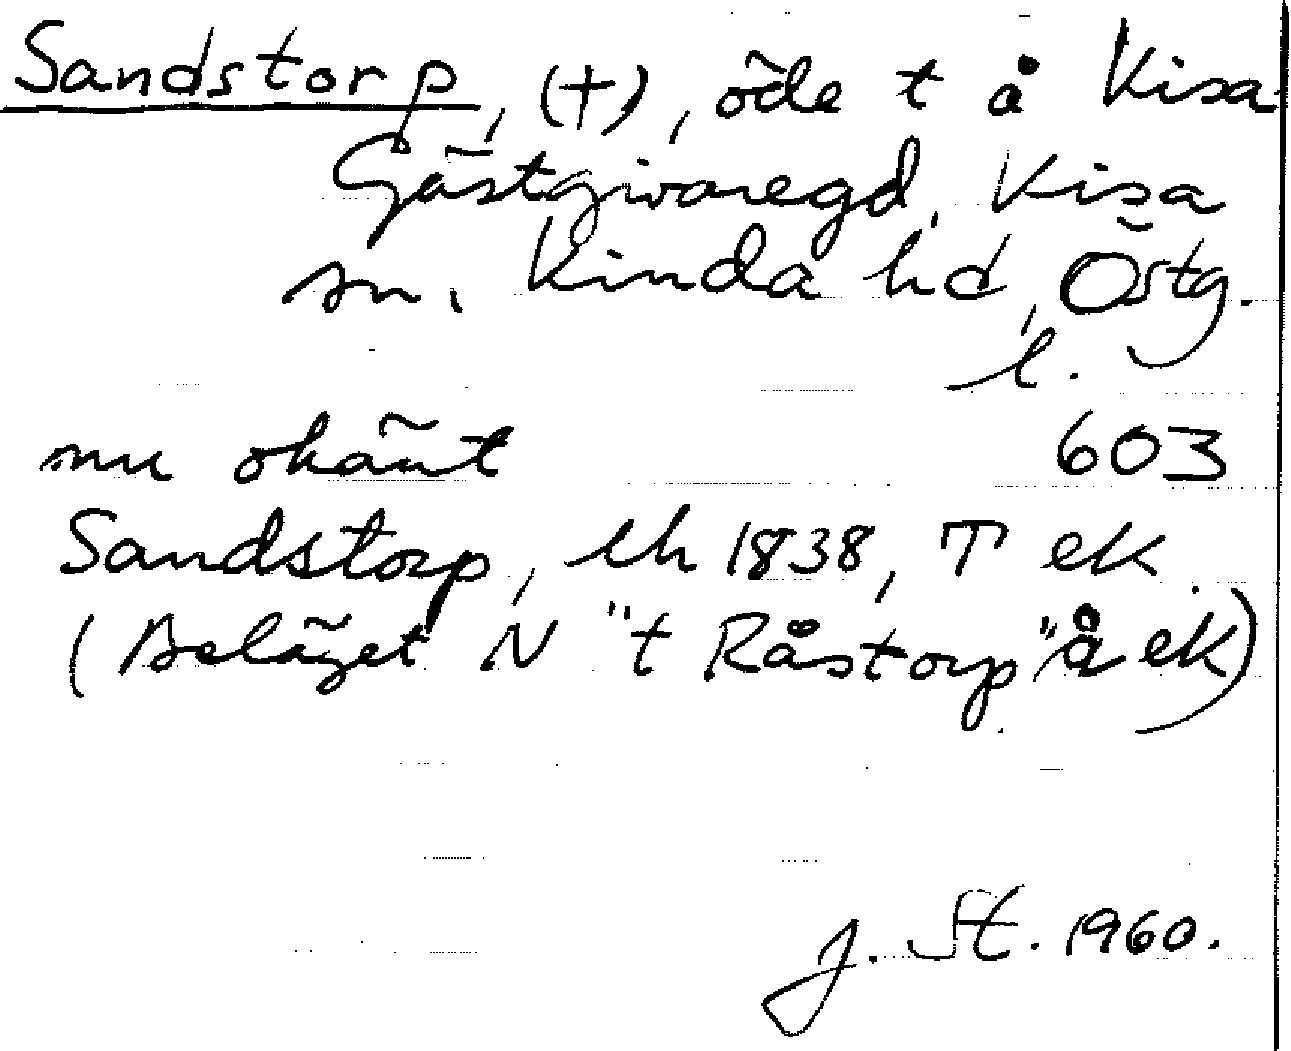 Sandstorp, (+), öde t å Kisa
Gästgivaregd, Kisa
sn. Kinda hd, Östg.
l.
nu okänt 603
Sandstorp, lh 1838, T ek.
(Beläget N "t Råstorp" å ek)
J. St. 1960.